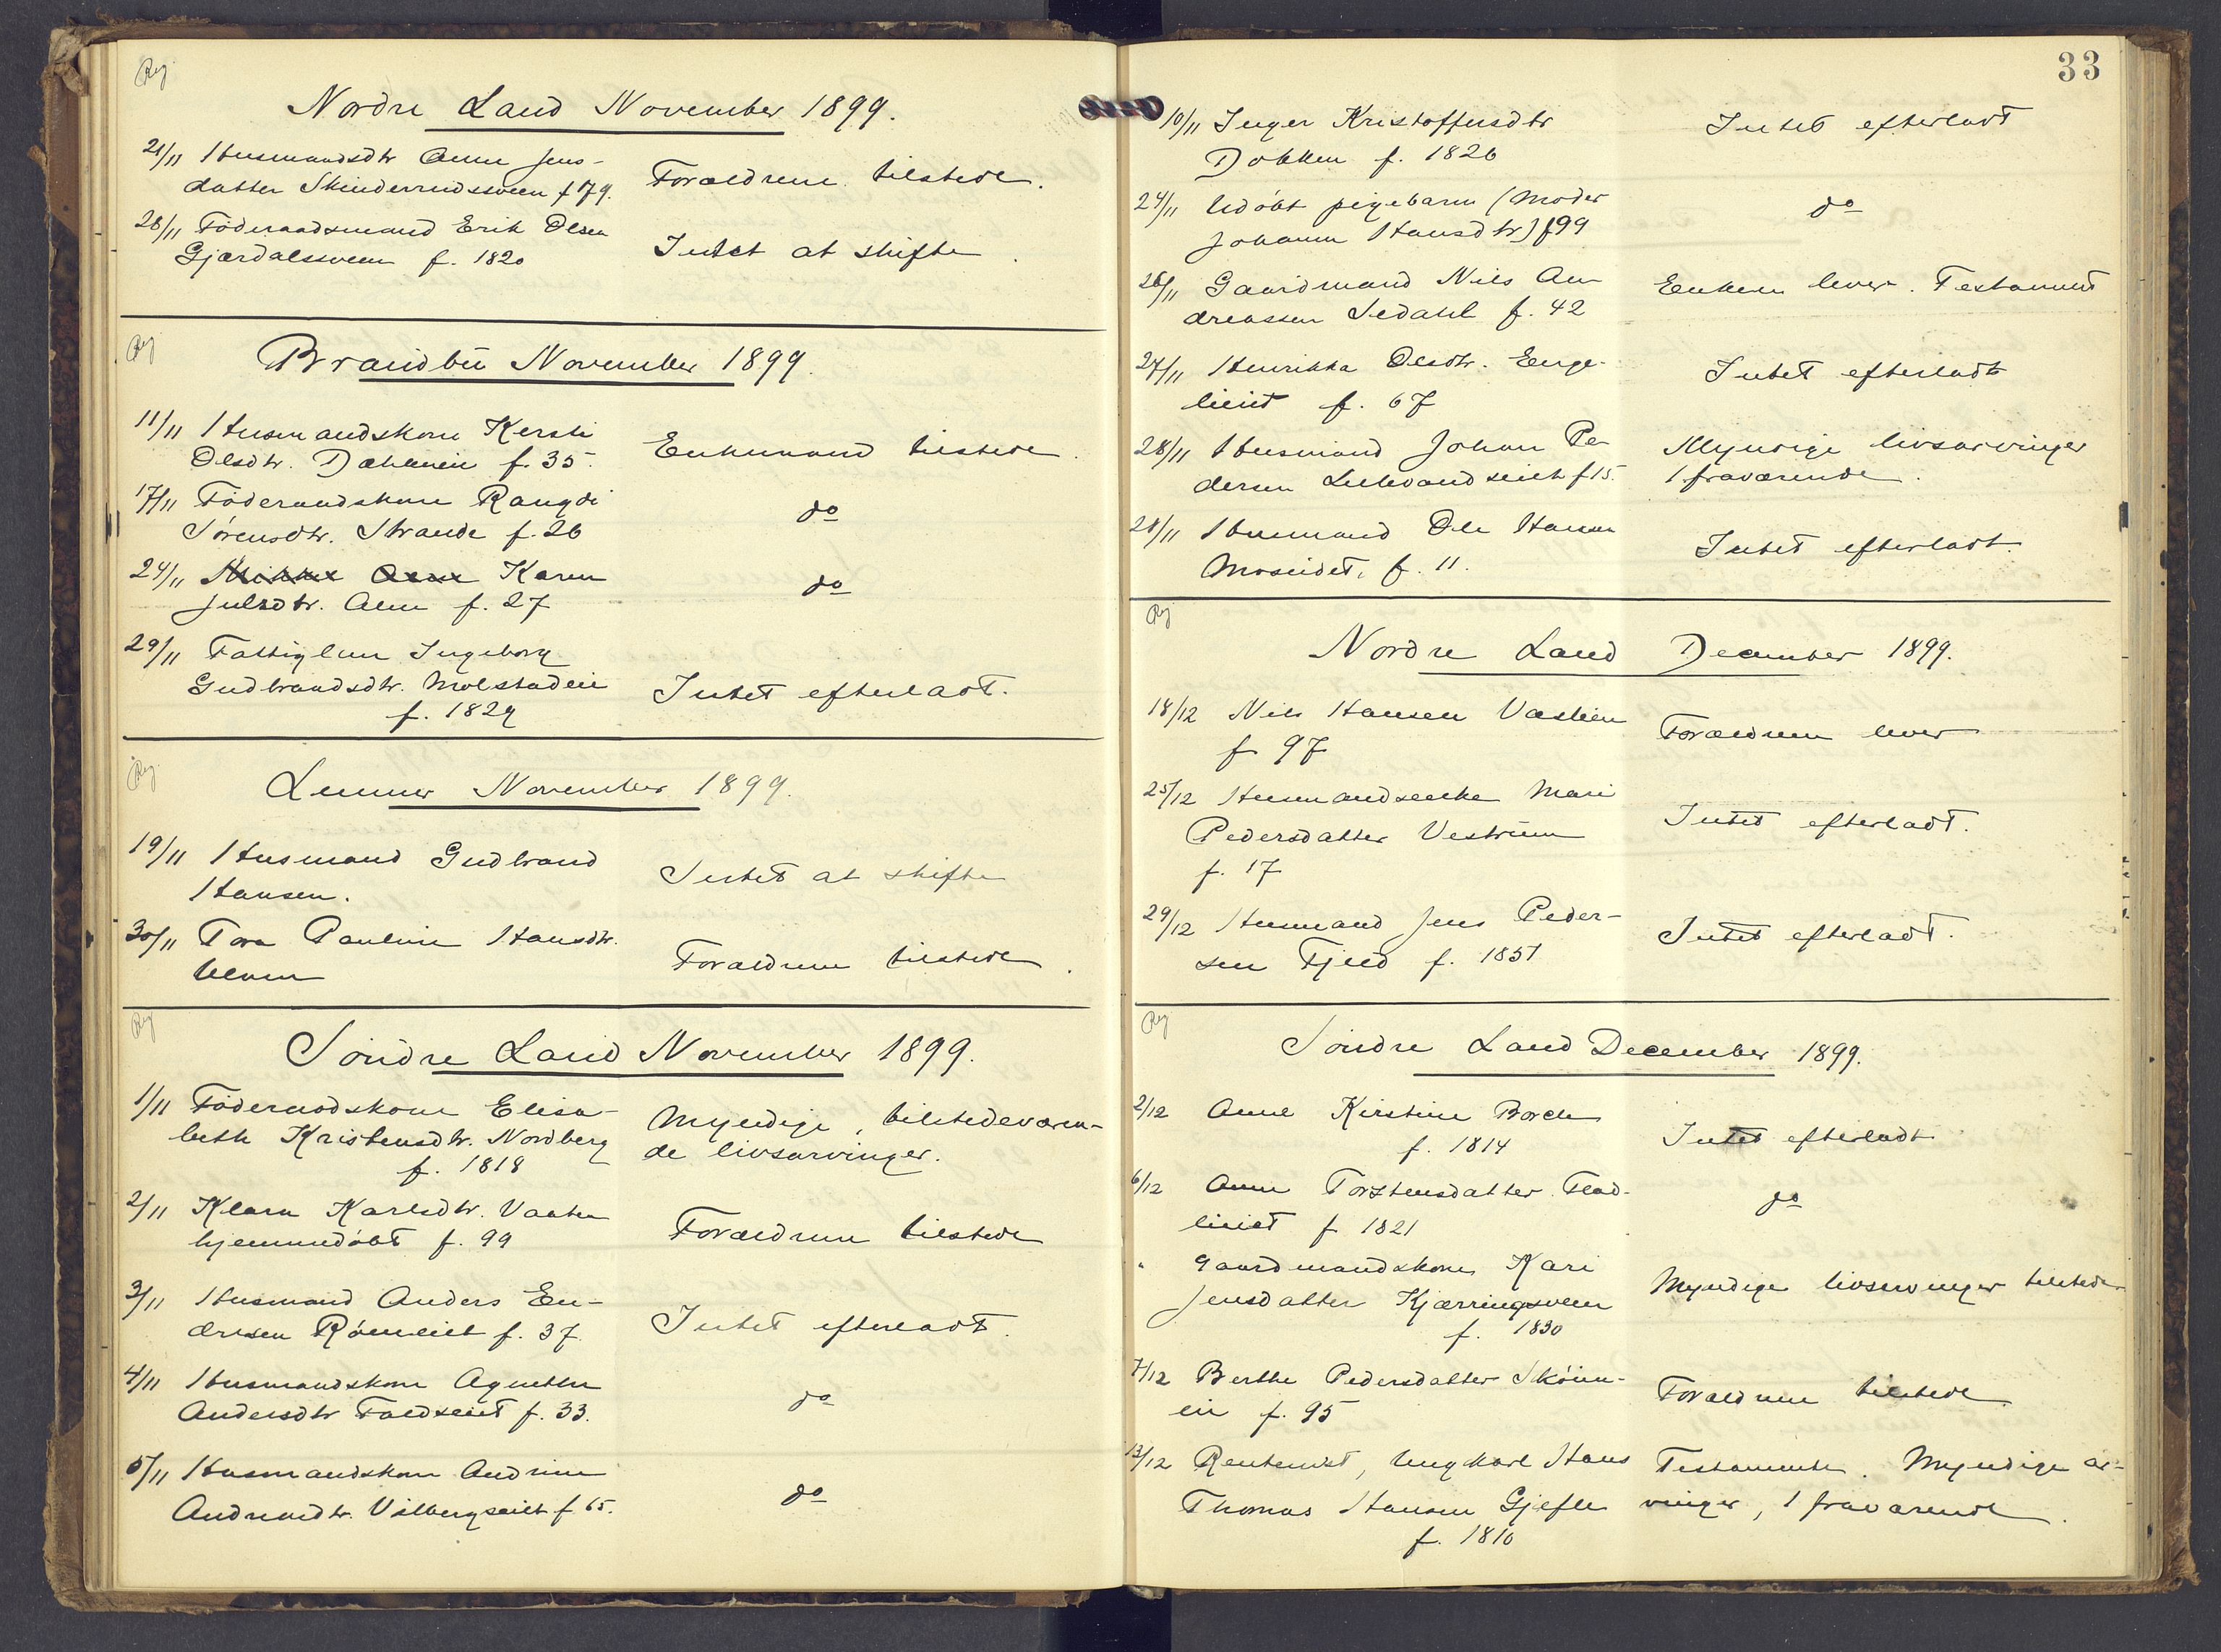 Reg
Nordre Land November 1899.
21/11 Husmandsdtr Anne Jens-
datter Skinderrudsveen f 79. Forældrene tilstede.
28/11 Föderaadsmand Erik Olsen
Gjærdalssveen f. 1820 Intet at skifte.
Reg
Brandbu November 1899.
11/11 Husmandskone Kersti
Olsdtr. Dæhleneie f. 35. Enkemand tilstede.
17/11 Föderaadskone Rangdi
Sørensdtr. Strande f. 26 do
24/11 Karen
Julsdtr. Alm f. 27 do
29/11 Fattiglem Ingeborg
Gudbrandsdtr. Molstadeie Intet efterladt.
f. 1829
Reg.
Lunner November 1899.
19/11 Husmand Gudbrand
Hansen. Intet at skifte
30/11 Tora Pauline Hansdtr.
Ulven Forældrene tilstede.
Reg
Söndre Land November 1899.
1/11 Föderaadskone Elisa- Myndige, tilstedeværen-
beth Kristensdtr. Nordberg de livsarvinger.
f. 1818
2/11 Klara Karlsdtr. Vaaten
hjemmedøbt f. 99 Forældrene tilstede
3/11 Husmand Anders En-
dresen Røneeiet f. 37 Intet efterladt.
4/11 Husmandskone Agnethe
Andersdtr Faldseiet f. 33. do
5/11 Husmandskone Andrine
Andreasdtr. Vilbergseiet f. 65. do
33
10/11 Inger Kristoffersdtr Intet efterladt
Dokken f. 1826
24/11 Udøbt pigebarn (Moder do
Johanne Hansdtr) f 99
26/11 Gaardmand Nils An- Enken lever. Testament
dreassen Sedahl f. 42
27/11 Henrikka Olsdtr. Enge- Intet efterladt
lieiet f. 67
28/11 Husmand Johan Pe- Myndige livsarvinger
dersen Lillevandseiet f 15. 1 fraværende.
28/11 Husmand Ole Hansen Intet efterladt.
Moseidet, f. 11.
Reg
Nordre Land December 1899.
18/12 Nils Hansen Vastien Forældrene lever
f 97
25/12 Husmandsenke Mari
Pedersdatter Vestrum Intet efterladt.
f. 17
29/12 Husmand Jens Peder- Intet efterladt.
sen Fjeld f. 1851
Reg
Söndre Land December 1899.
2/12 Anne Kirstine Borch
f. 1814 Intet efterladt
6/12 Anne Torstensdatter Flad- do
lieiet f 1821
" Gaardmandskone Kari
Jensdatter Kjærringsveen Myndige livsarvinger tilstede
f. 1830
7/12 Berthe Pedersdatter Skøien- Forældrene tilstede
eie f. 95
13/12 Rentenist, Ungkarl Hans Testamente. Myndige ar-
Thomas Hansen Gjefle vinger, 1 fraværende.
f. 1810